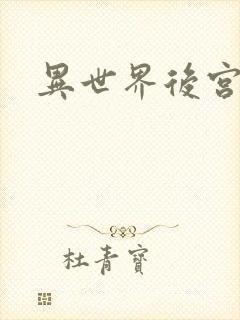 異世界後宮
杜青寶